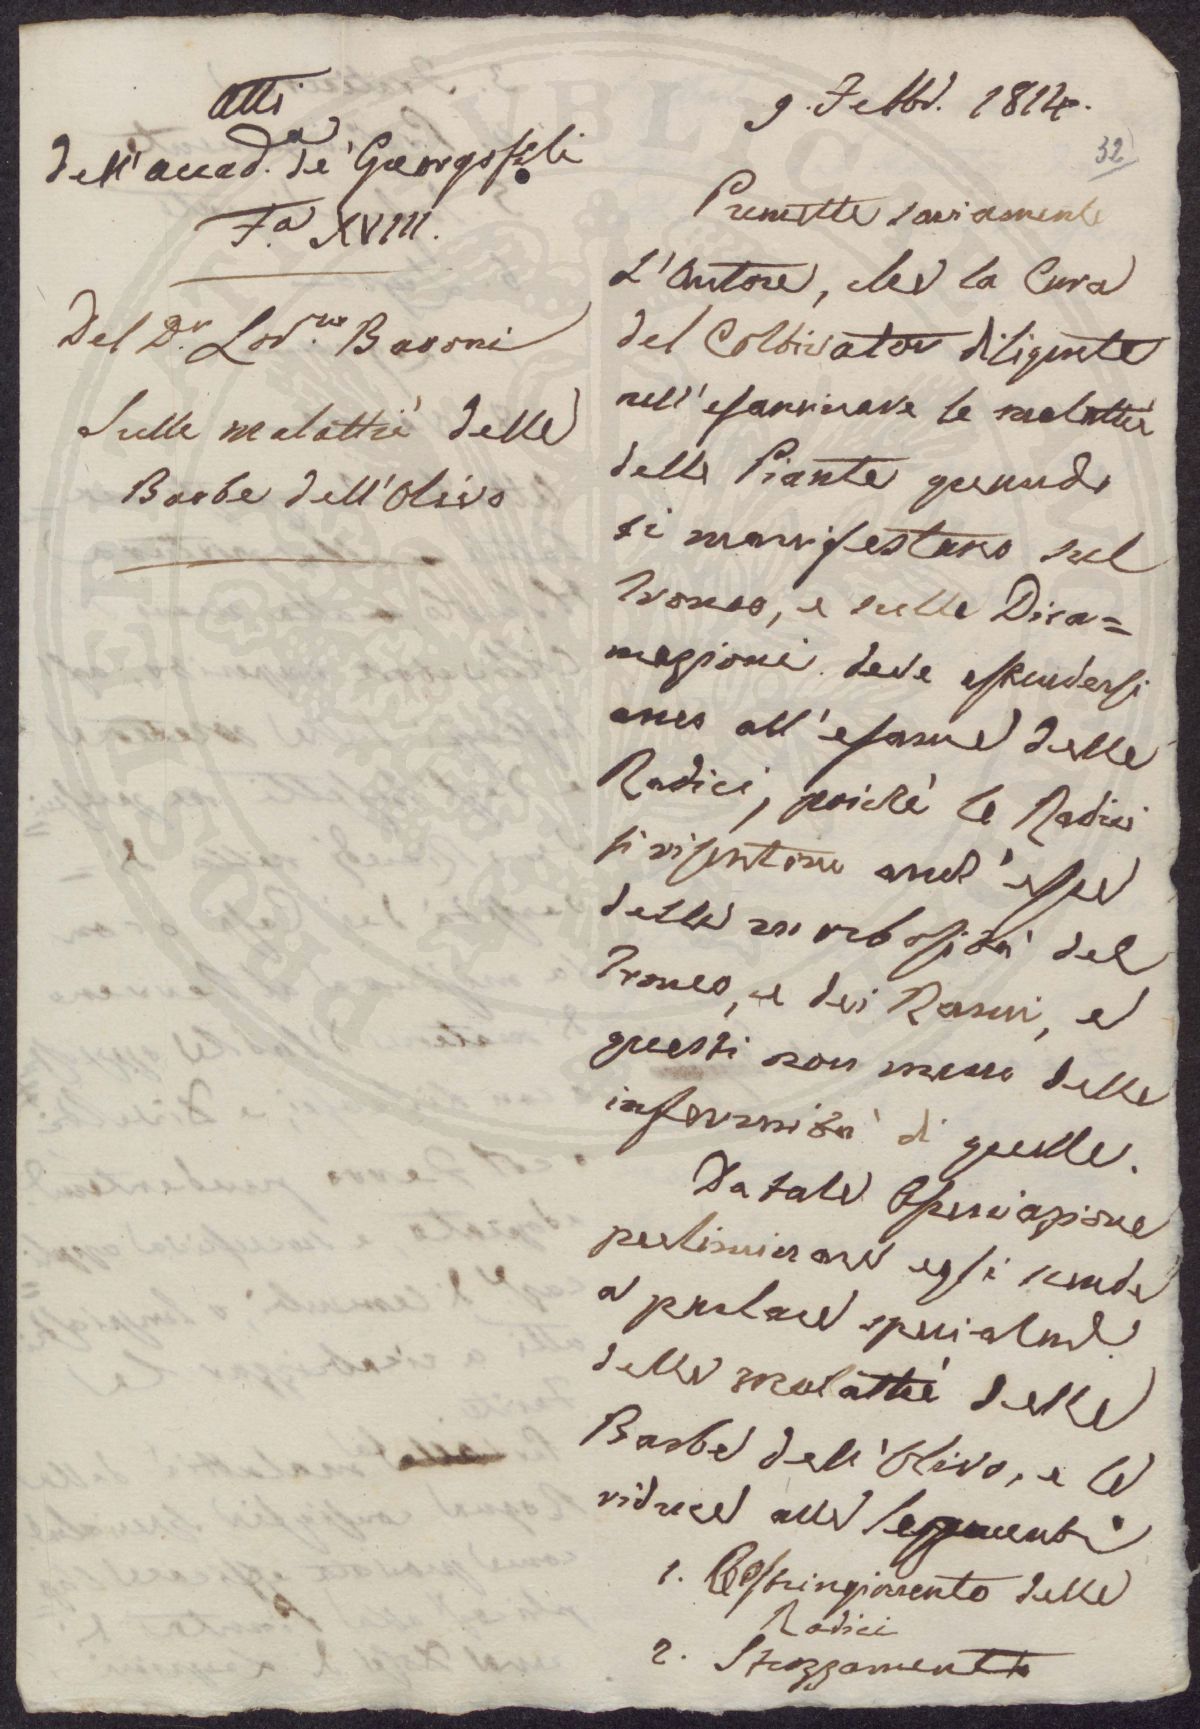 Atti
dell'accad.a de' Georgofili
T.a XVIII.
Del Dr. Lod.co Baroni
Sulle malattie delle
Barbe dell'Olivo
9. Febb. 1814.
32
Premette saviamente
L'Autore, che la Cura
del Coltivator diligente
nell'esaminare le malattie
delle Piante quando
si manifestano sul
Tronco, e sulle Dira=
mazioni deve estendersi
anco all'esame delle
Radici, poichè le Radici
si risentono anch'esse
delle morbosità del
Tronco, e dei Rami, e
questi non meno delle
infermità di quelle.
Da tale Osservazione
preliminare egli scende
a parlare specialmte.
delle malattie delle
Barbe dell'Olivo, e le
riduce alle seguenti
1. Costringimento delle
Radici
2. Strozzamento